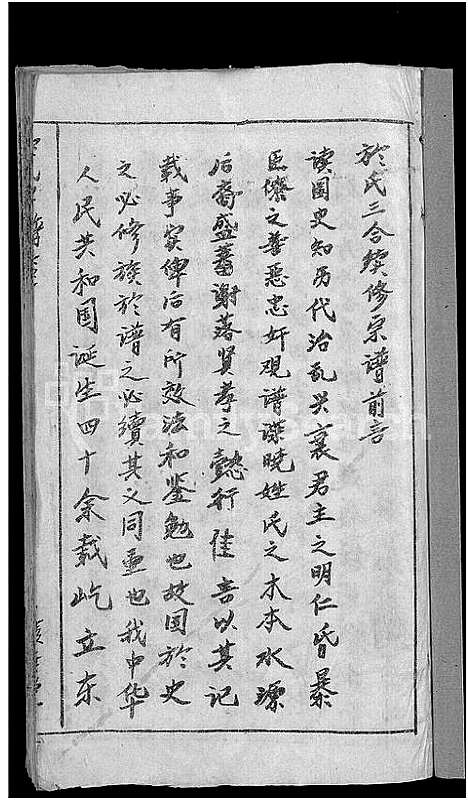 於氏三合续修宗谱前言
读国史知历代治乱兴衰君主之明仁昏暴
臣僚之善恶忠奸观谱牒晓姓氏之木本水源
后裔盛蕃谢落贤孝之懿行佳言以其记
载事实俾后有所效法和鉴勉也故国於史
之必修族於谱之必续其义同重也我中华
人民共和国诞生四十余载屹立东